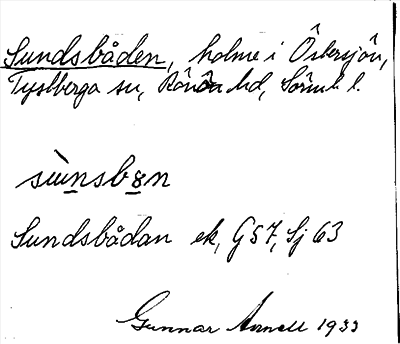 Sundsbåden, holme i Östersjön,
Tystberga sn, Rönö hd, Sörml. l.
sùnsbɘn
Sundsbådan ek, G57, Sj 63
Gunnar Annell 1933